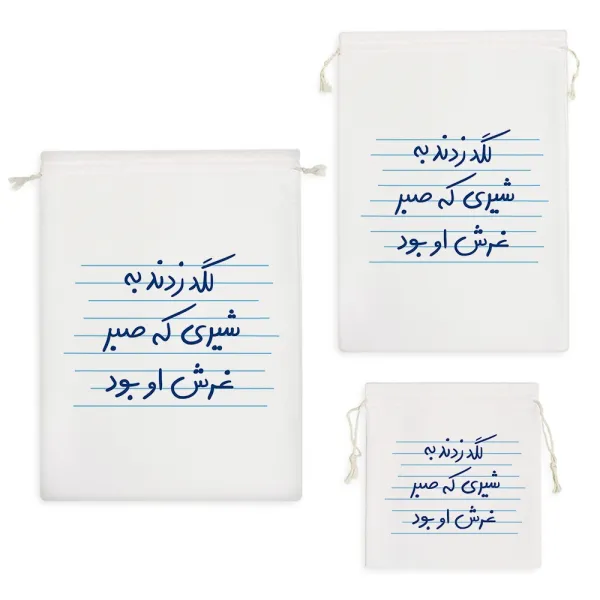 لگد زدند به
شیری که صبر
غرش او بود
لگد زدند به
شیری که صبر
غرش او بود
لگد زدند به
شیری که صبر
غرش او بود